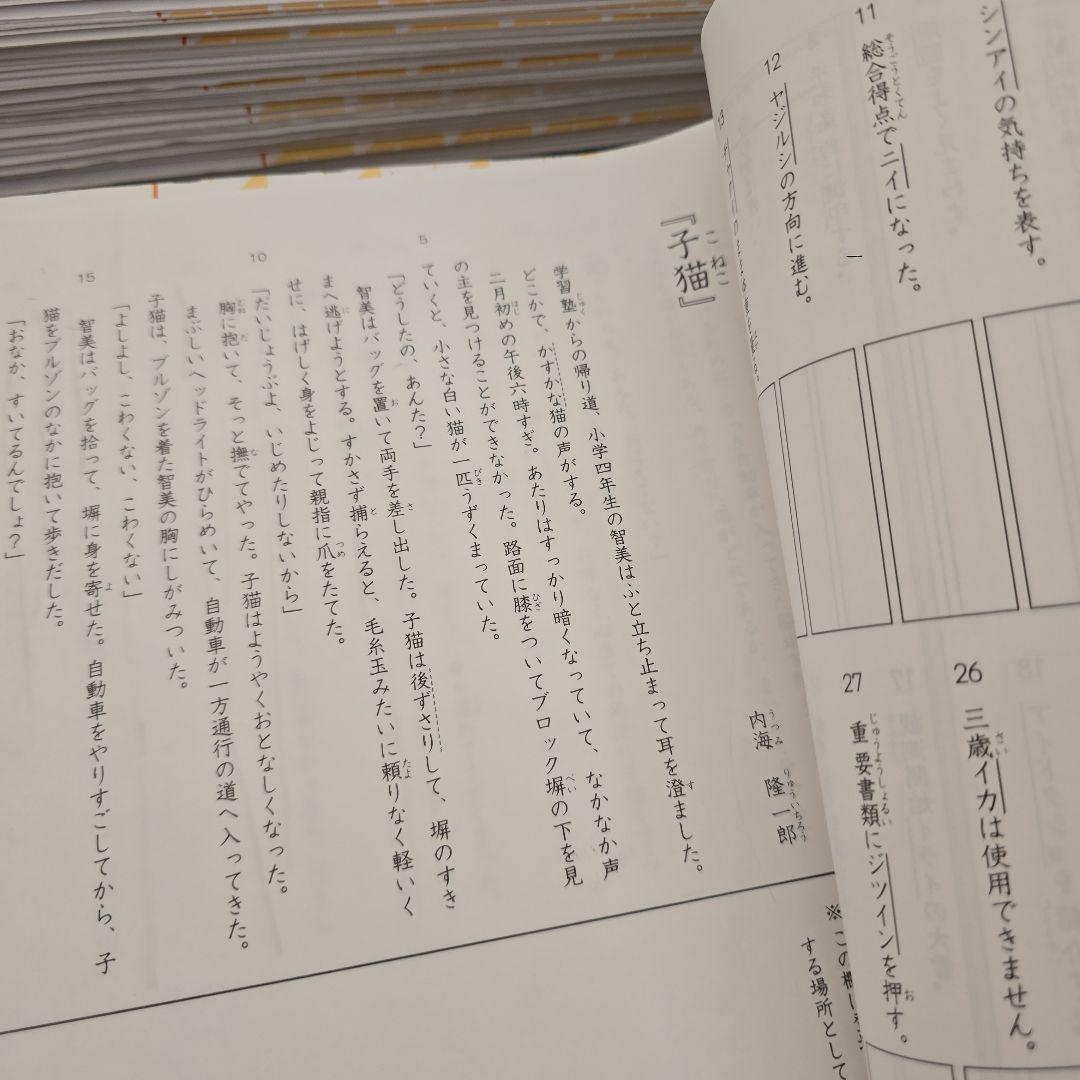 シンアイの気持ちを表す。
11 総合得点でニイになった。
そうごうとくてん
12 ヤジルシの方向に進む。
13
26 三歳イカは使用できません。
さい
27 重要書類にジツインを押す。
じゅうようしょるい
お
『子猫』
こねこ
内海 隆一郎
うつみ りゅういちろう
学習塾からの帰り道、小学四年生の智美はふと立ち止まって耳を澄ました。
じゅく
す
どこかで、かすかな猫の声がする。
二月初めの午後六時すぎ。あたりはすっかり暗くなっていて、なかなか声
はじ
の主を見つけることができなかった。路面に膝をついてブロック塀の下を見
ひざ
べい
5 ていくと、小さな白い猫が一匹うずくまっていた。
ぴき
「どうしたの、あんた？」
智美はバッグを置いて両手を差し出した。子猫は後ずさりして、塀のすき
お
さ
まへ逃げようとする。すかさず捕らえると、毛糸玉みたいに頼りなく軽いく
に
と
たよ
せに、はげしく身をよじって親指に爪をたてた。
つめ
10 「だいじょうぶよ、いじめたりしないから」
胸に抱いて、そっと撫でてやった。子猫はようやくおとなしくなった。
むね
だ
な
まぶしいヘッドライトがひらめいて、自動車が一方通行の道へ入ってきた。
子猫は、ブルゾンを着た智美の胸にしがみついた。
「よしよし、こわくない、こわくない」
15 智美はバッグを拾って、塀に身を寄せた。自動車をやりすごしてから、子
よ
猫をブルゾンのなかに抱いて歩きだした。
「おなか、すいてるんでしょ？」
※この欄は
する場所として